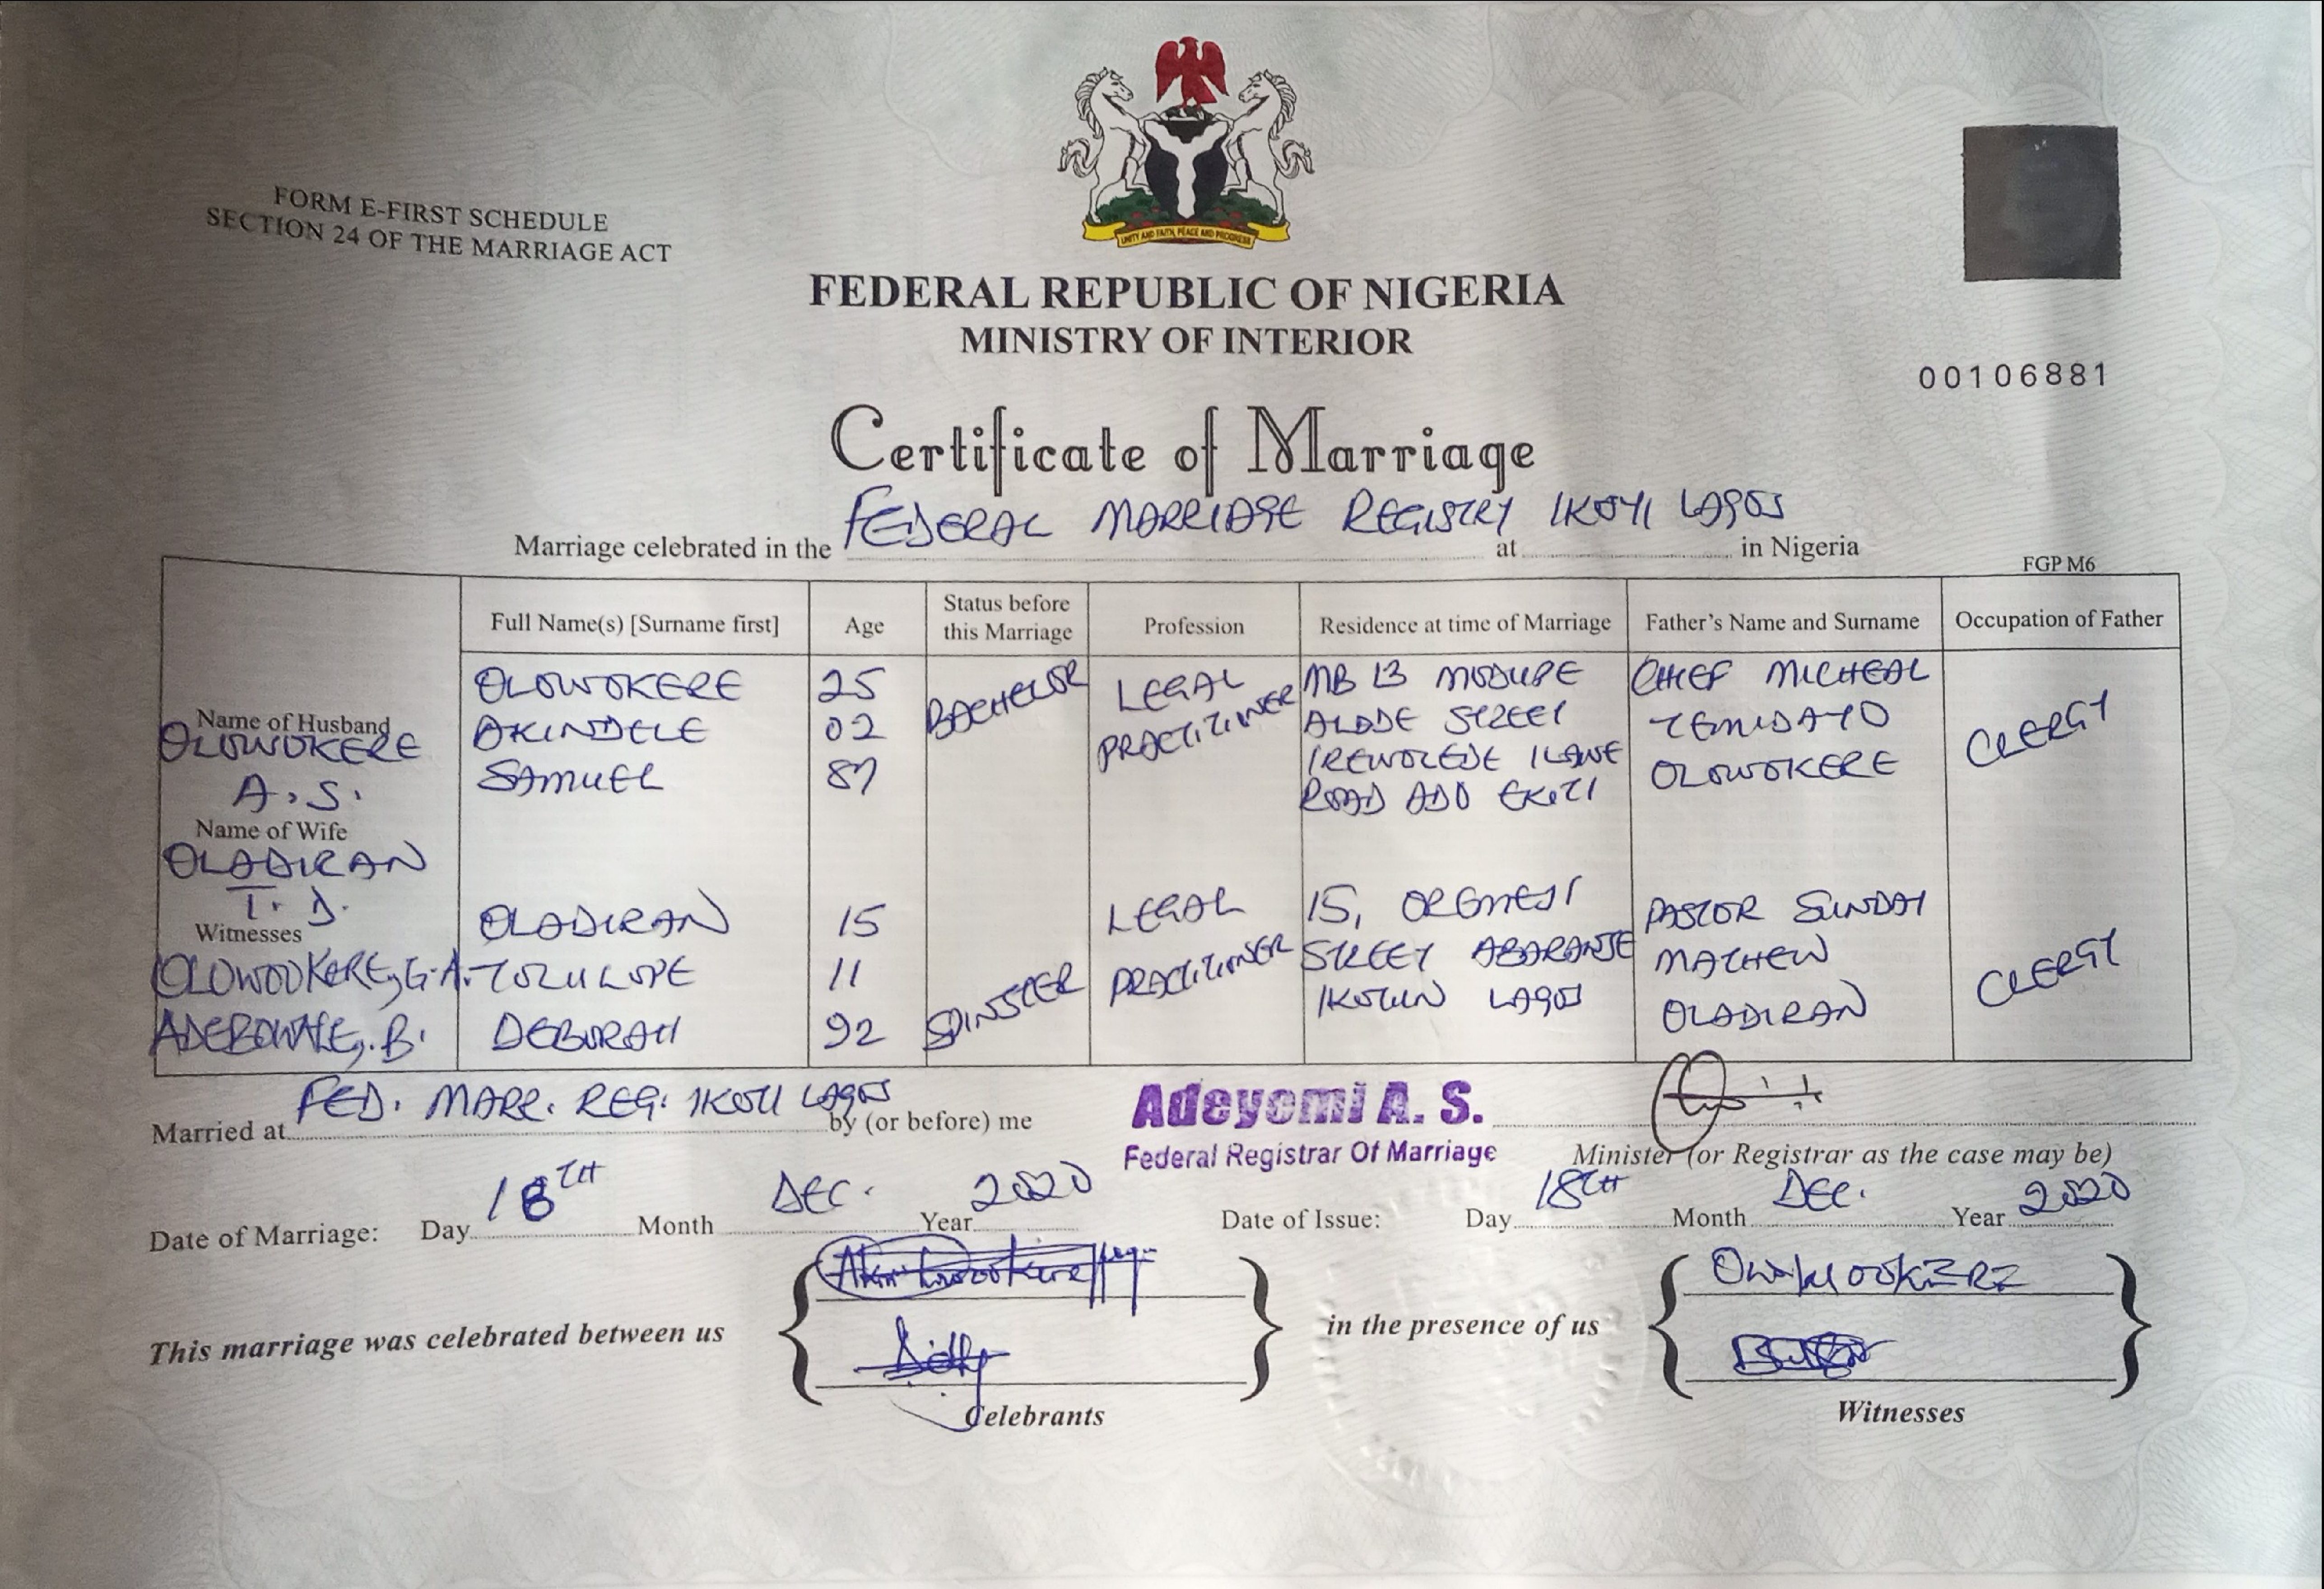 FORM E-FIRST SCHEDULE
SECTION 24 OF THE MARRIAGE ACT
UNITY AND FAITH, PEACE AND PROGRESS
FEDERAL REPUBLIC OF NIGERIA
MINISTRY OF INTERIOR
00106881
Certificate of Marriage
Marriage celebrated in the FEDERAL MARRIAGE REGISTRY IKOYI LAGOS at in Nigeria
FGP M6
Full Name(s) [Surname first] Age Status before this Marriage Profession Residence at time of Marriage Father's Name and Surname Occupation of Father
Name of Husband
OLOWOKERE
A. S.
OLOWOKERE
AKINDELE
SAMUEL
25
02
87
BACHELOR
LEGAL
PRACTITIONER
MB 13 MODUPE
ALADE STREET
IREWOLEDE ILAWE
ROAD ADO EKITI
CHIEF MICHEAL
TEMIDAYO
OLOWOKERE
CLERGY
Name of Wife
OLADIRAN
T. D.
OLADIRAN
TOLULOPE
DEBORAH
15
11
92
SPINSTER
LEGAL
PRACTITIONER
15,
STREET ABARANJE
IKOTUN LAGOS
PASTOR SUNDAY
MATHEW
OLADIRAN
CLERGY
Witnesses
OLOWOOKERE, G. A.
ADEBOWALE, B.
Married at FED. MARR. REG. IKOYI LAGOS by (or before) me
Adeyemi A. S.
Federal Registrar Of Marriage
Minister (or Registrar as the case may be)
Date of Marriage: Day 18TH Month DEC. Year 2020 Date of Issue: Day 18TH Month DEC. Year 2020
This marriage was celebrated between us
Celebrants
in the presence of us
Witnesses